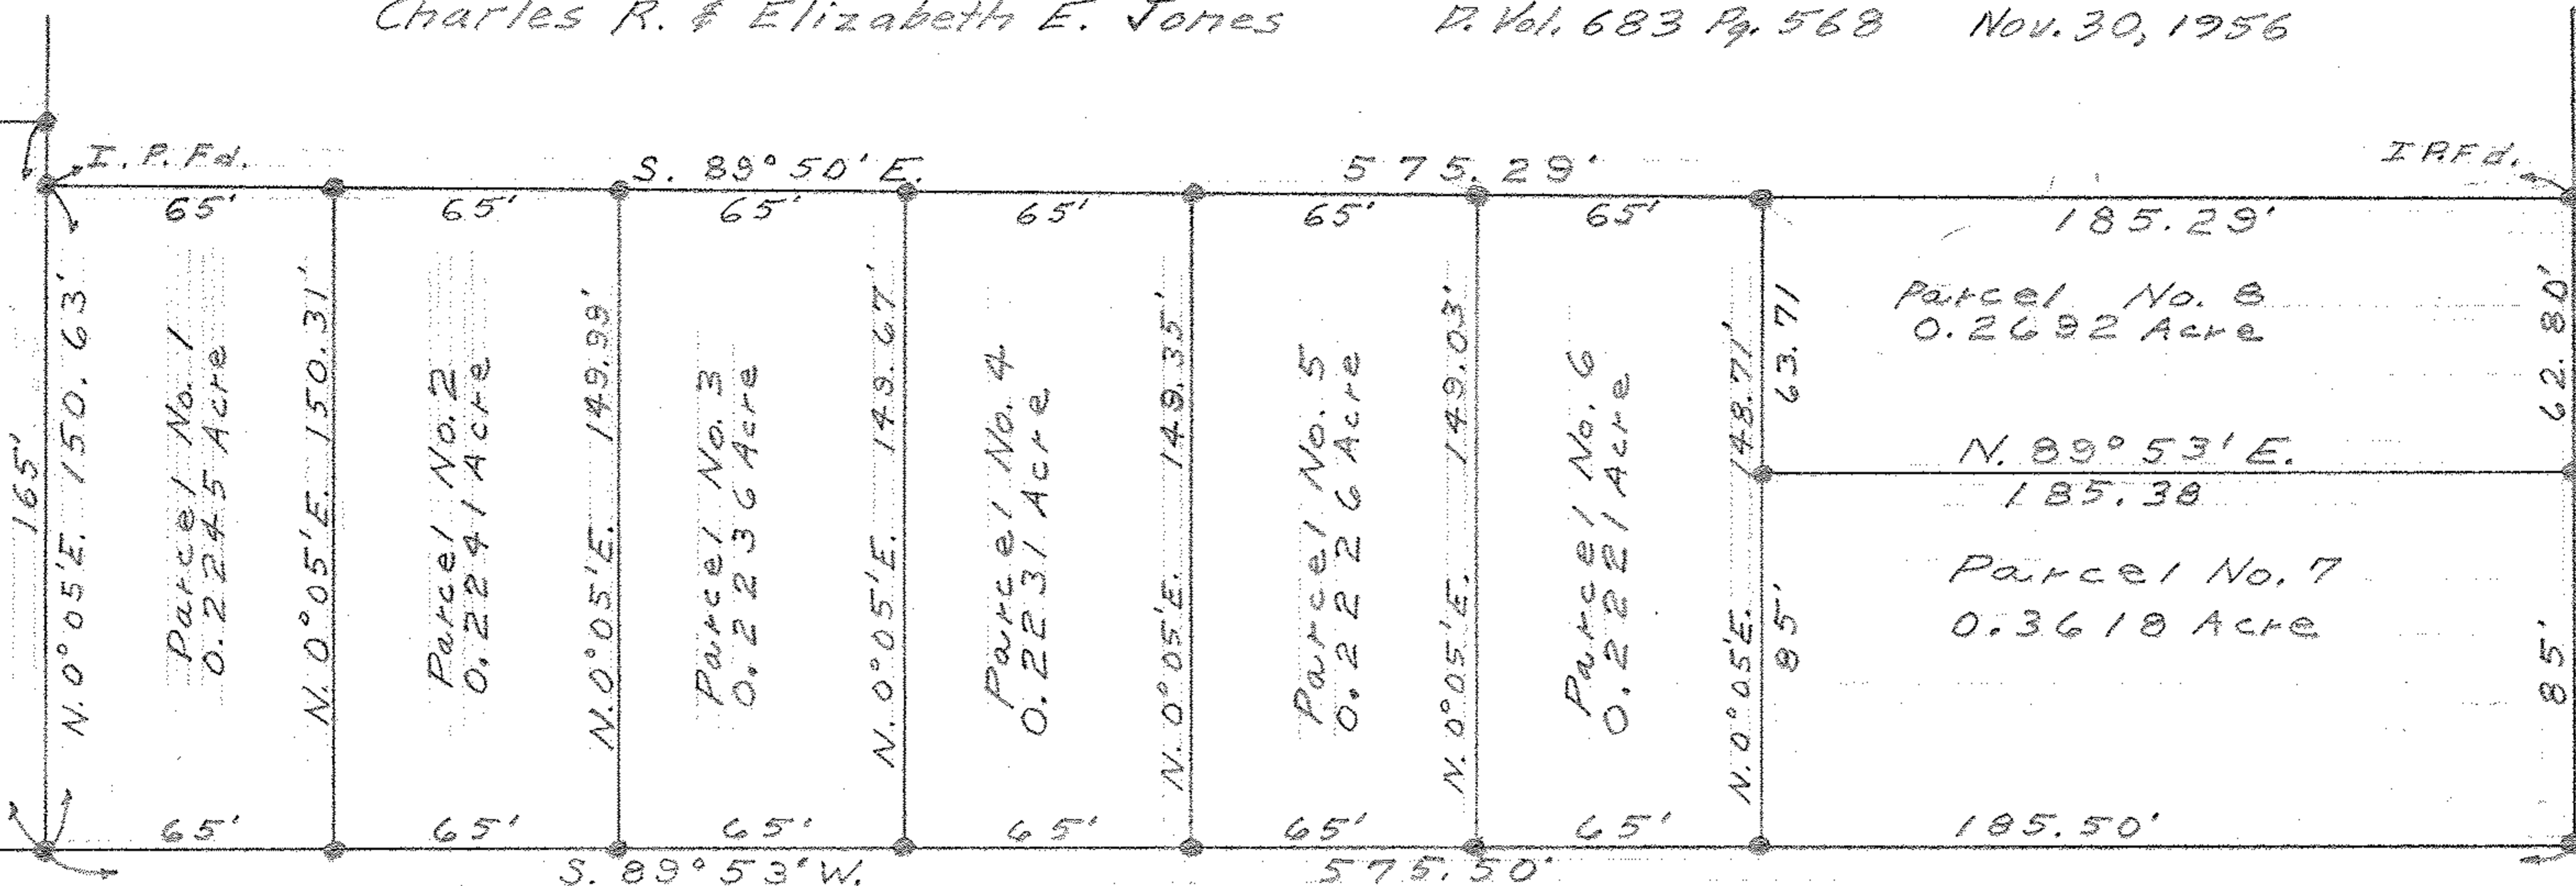 Charles R. & Elizabeth E. Jones D. Vol. 683 Pg. 568 Nov. 30, 1956
I. P. Fd.
S. 89° 50' E.
575.29'
I.P.Fd.
65'
65'
65'
65'
65'
65'
185.29'
165'
N. 0° 05' E. 150.63'
Parcel No. 1
0.2245 Acre
N. 0° 05' E. 150.31'
Parcel No. 2
0.2241 Acre
N. 0° 05' E. 149.99'
Parcel No. 3
0.2236 Acre
N. 0° 05' E. 149.67'
Parcel No. 4
0.2231 Acre
N. 0° 05' E. 149.35'
Parcel No. 5
0.2226 Acre
N. 0° 05' E. 149.03'
Parcel No. 6
0.2221 Acre
N. 0° 05' E. 148.71'
63.71
85'
Parcel No. 8
0.2692 Acre
62.80'
N. 89° 53' E.
185.38
Parcel No. 7
0.3618 Acre
85'
65'
65'
65'
65'
65'
65'
185.50'
S. 89° 53' W.
575.50'